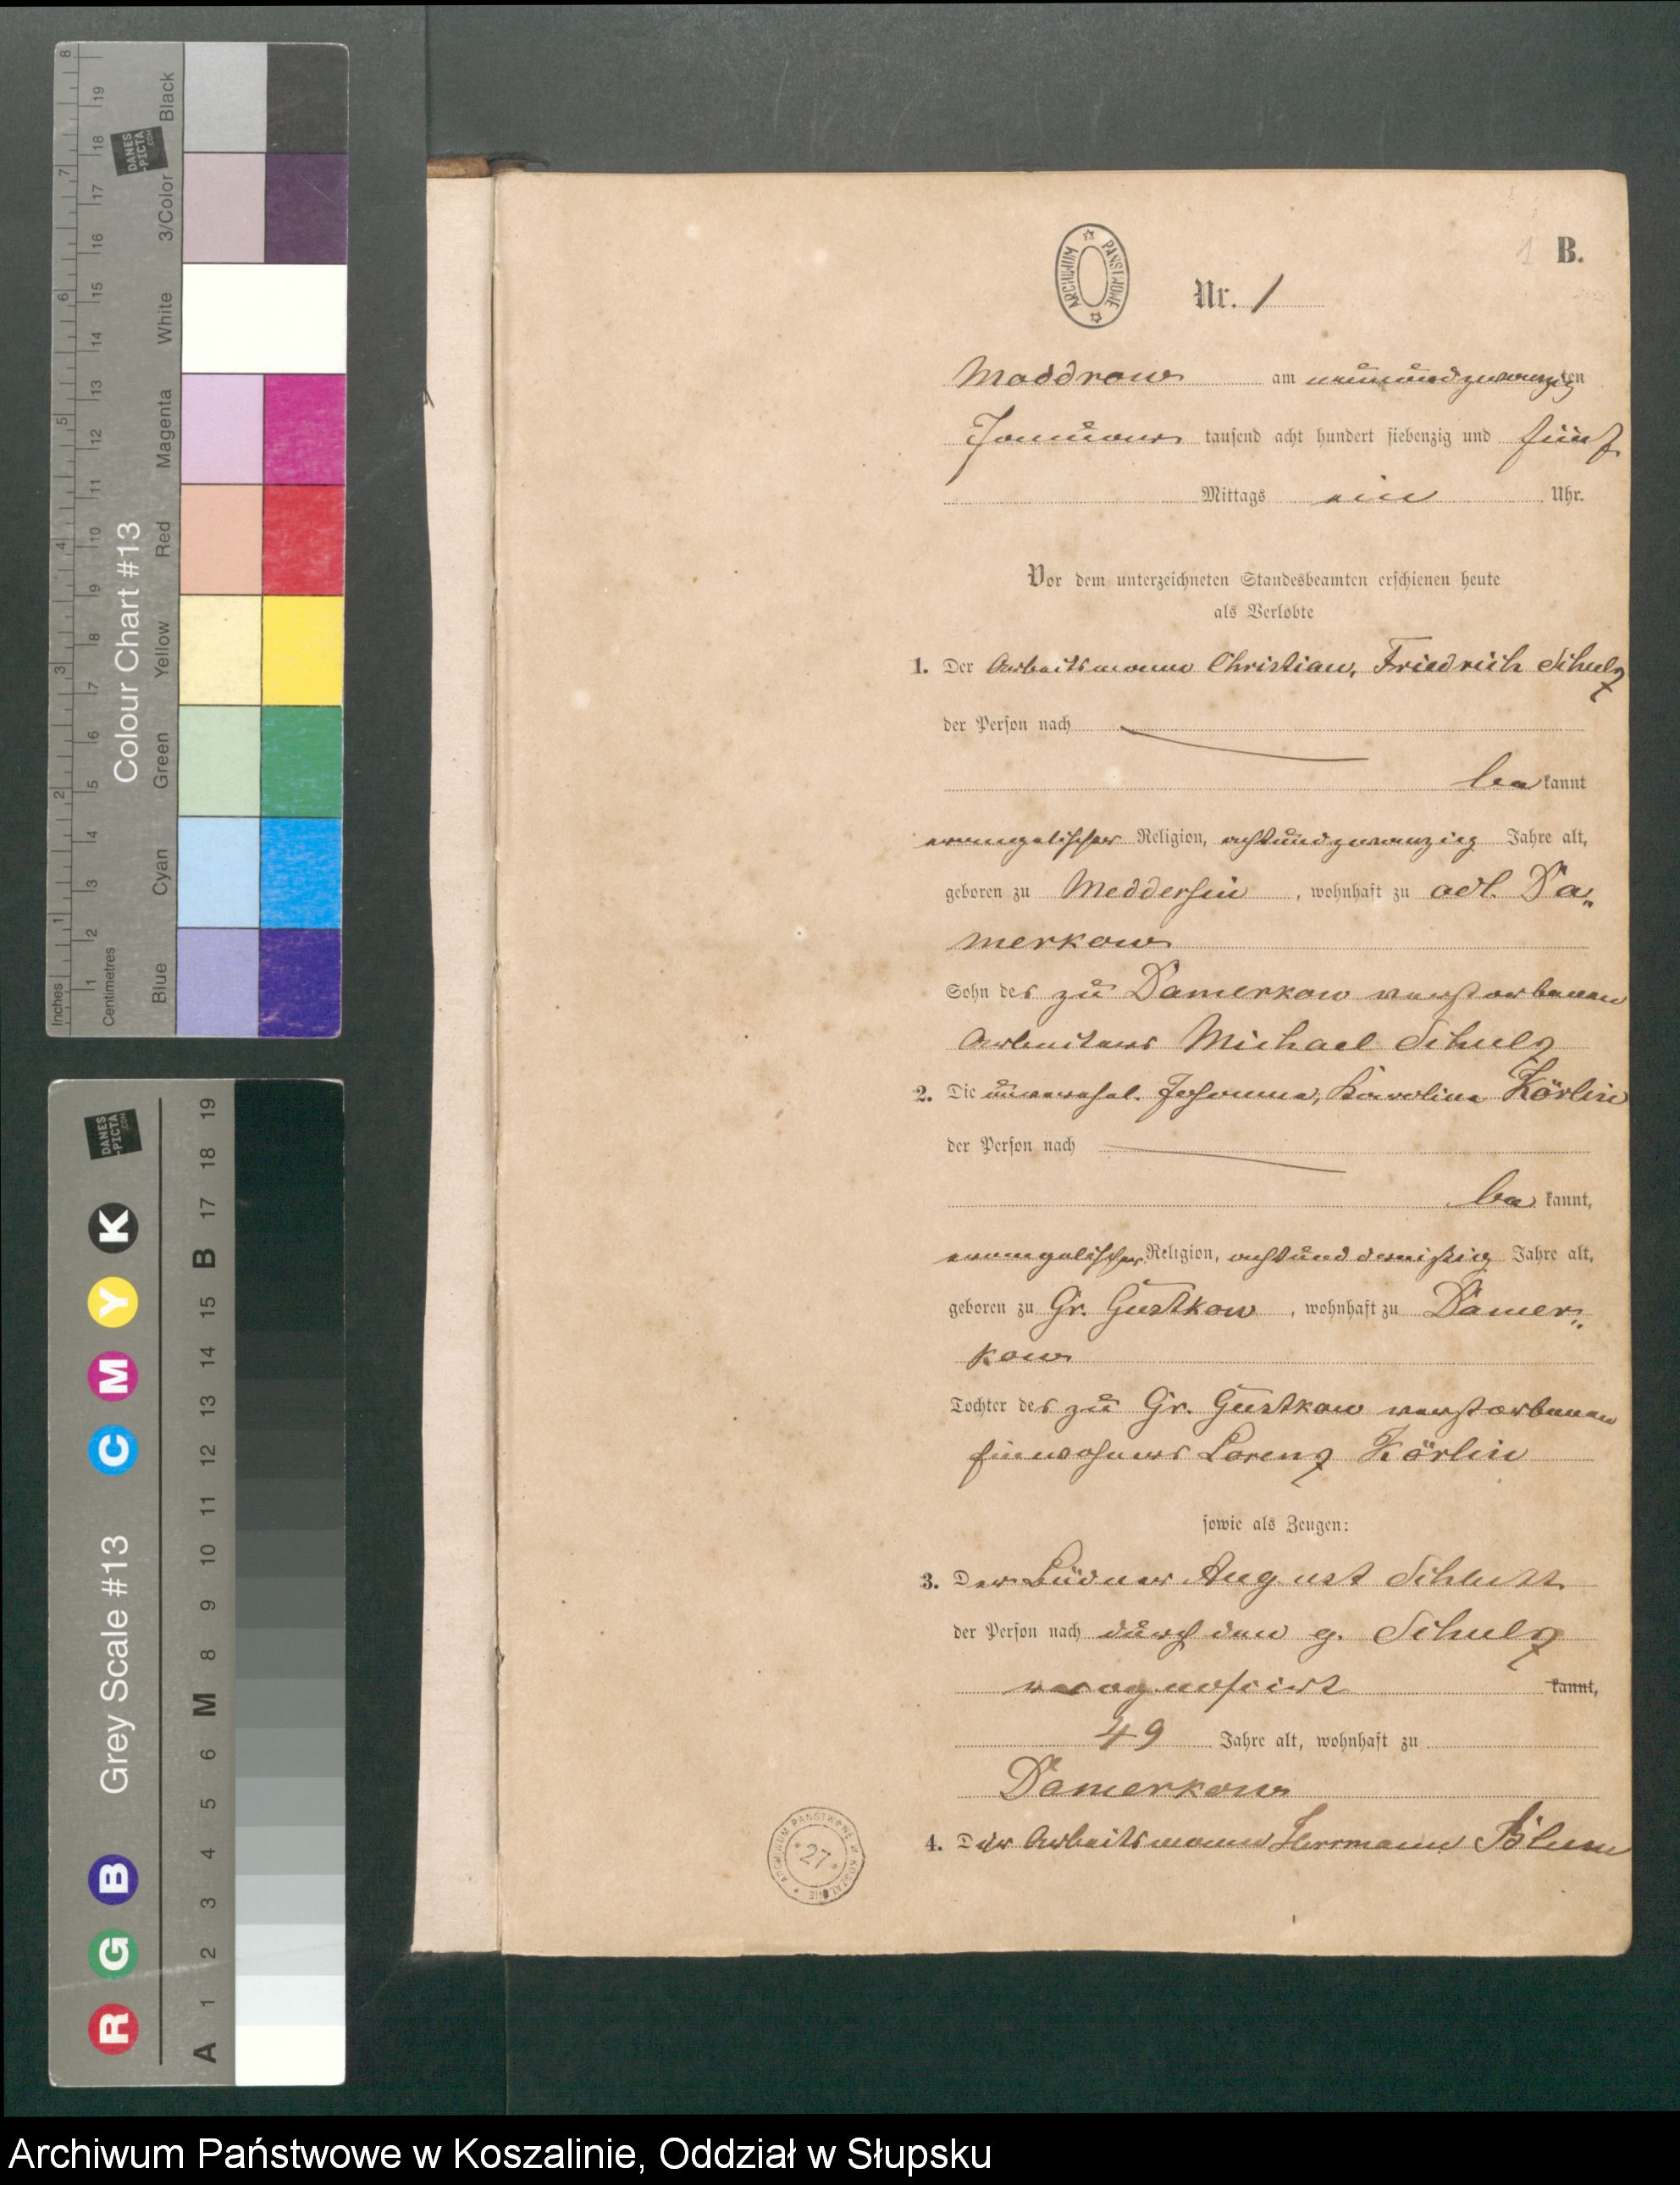 B.
Nr. 1
ARCHIWUM PAŃSTWOWE
Maddrow am neunundzwanzigten
Januar tausend acht hundert siebenzig und fünf
Mittags ein Uhr.
Vor dem unterzeichneten Standesbeamten erschienen heute
als Verlobte
1. Der Arbeitsmann Christian, Friedrich Schulz
der Person nach
be kannt
evangelischer Religion, achtundzwanzig Jahre alt,
geboren zu Meddersin, wohnhaft zu adl. Da„
merkow
Sohn des zu Damerkow verstorbenen
Arbeiters Michael Schulz
2. Die unverehel. Johanna, Karoline Körlin
der Person nach
be kannt,
evangelischer Religion, achtunddreißig Jahre alt,
geboren zu Gr. Gustkow, wohnhaft zu Damer„
kow
Tochter des zu Gr. Gustkow verstorbenen
Einwohners Lorenz Körlin
sowie als Zeugen:
3. Der Büdner August Schlutt
der Person nach durch den g. Schulz
recognoscirt kannt,
49 Jahre alt, wohnhaft zu
Damerkow
4. Der Arbeitsmann Herrmann Blum
ARCHIWUM PAŃSTWOWE W KOSZALINIE
27
Colour Chart #13
Black
3/Color
White
Magenta
Red
Yellow
Green
Cyan
Blue
Inches
1 2 3 4 5 6 7 8
Centimetres
1 2 3 4 5 6 7 8 9 10 11 12 13 14 15 16 17 18 19
DANES-PICTA.COM
Grey Scale #13
R G B C M Y K
A 1 2 3 4 5 6 M 8 9 10 11 12 13 14 15 B 17 18 19
DANES-PICTA.COM
Archiwum Państwowe w Koszalinie, Oddział w Słupsku